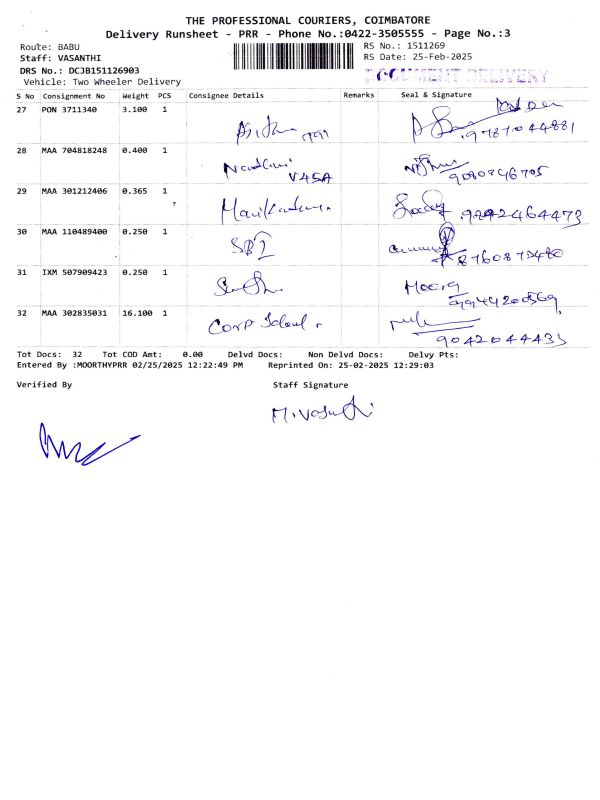 THE PROFESSIONAL COURIERS, COIMBATORE
Delivery Runsheet - PRR - Phone No.:0422-3505555 - Page No.:3
Route: BABU
Staff: VASANTHI
DRS No.: DCJB151126903
Vehicle: Two Wheeler Delivery
RS No.: 1511269
RS Date: 25-Feb-2025
DOCUMENT DELIVERY
S No Consignment No Weight PCS Consignee Details Remarks Seal & Signature
27 PON 3711340 3.100 1
28 MAA 704818248 0.400 1
29 MAA 301212406 0.365 1
30 MAA 110489400 0.250 1 SBI 8760873480
31 IXM 507909423 0.250 1 9944200569
32 MAA 302835031 16.100 1 Corp School 9042044433
Tot Docs: 32 Tot COD Amt: 0.00 Delvd Docs: Non Delvd Docs: Delvy Pts:
Entered By :MOORTHYPRR 02/25/2025 12:22:49 PM Reprinted On: 25-02-2025 12:29:03
Verified By Staff Signature